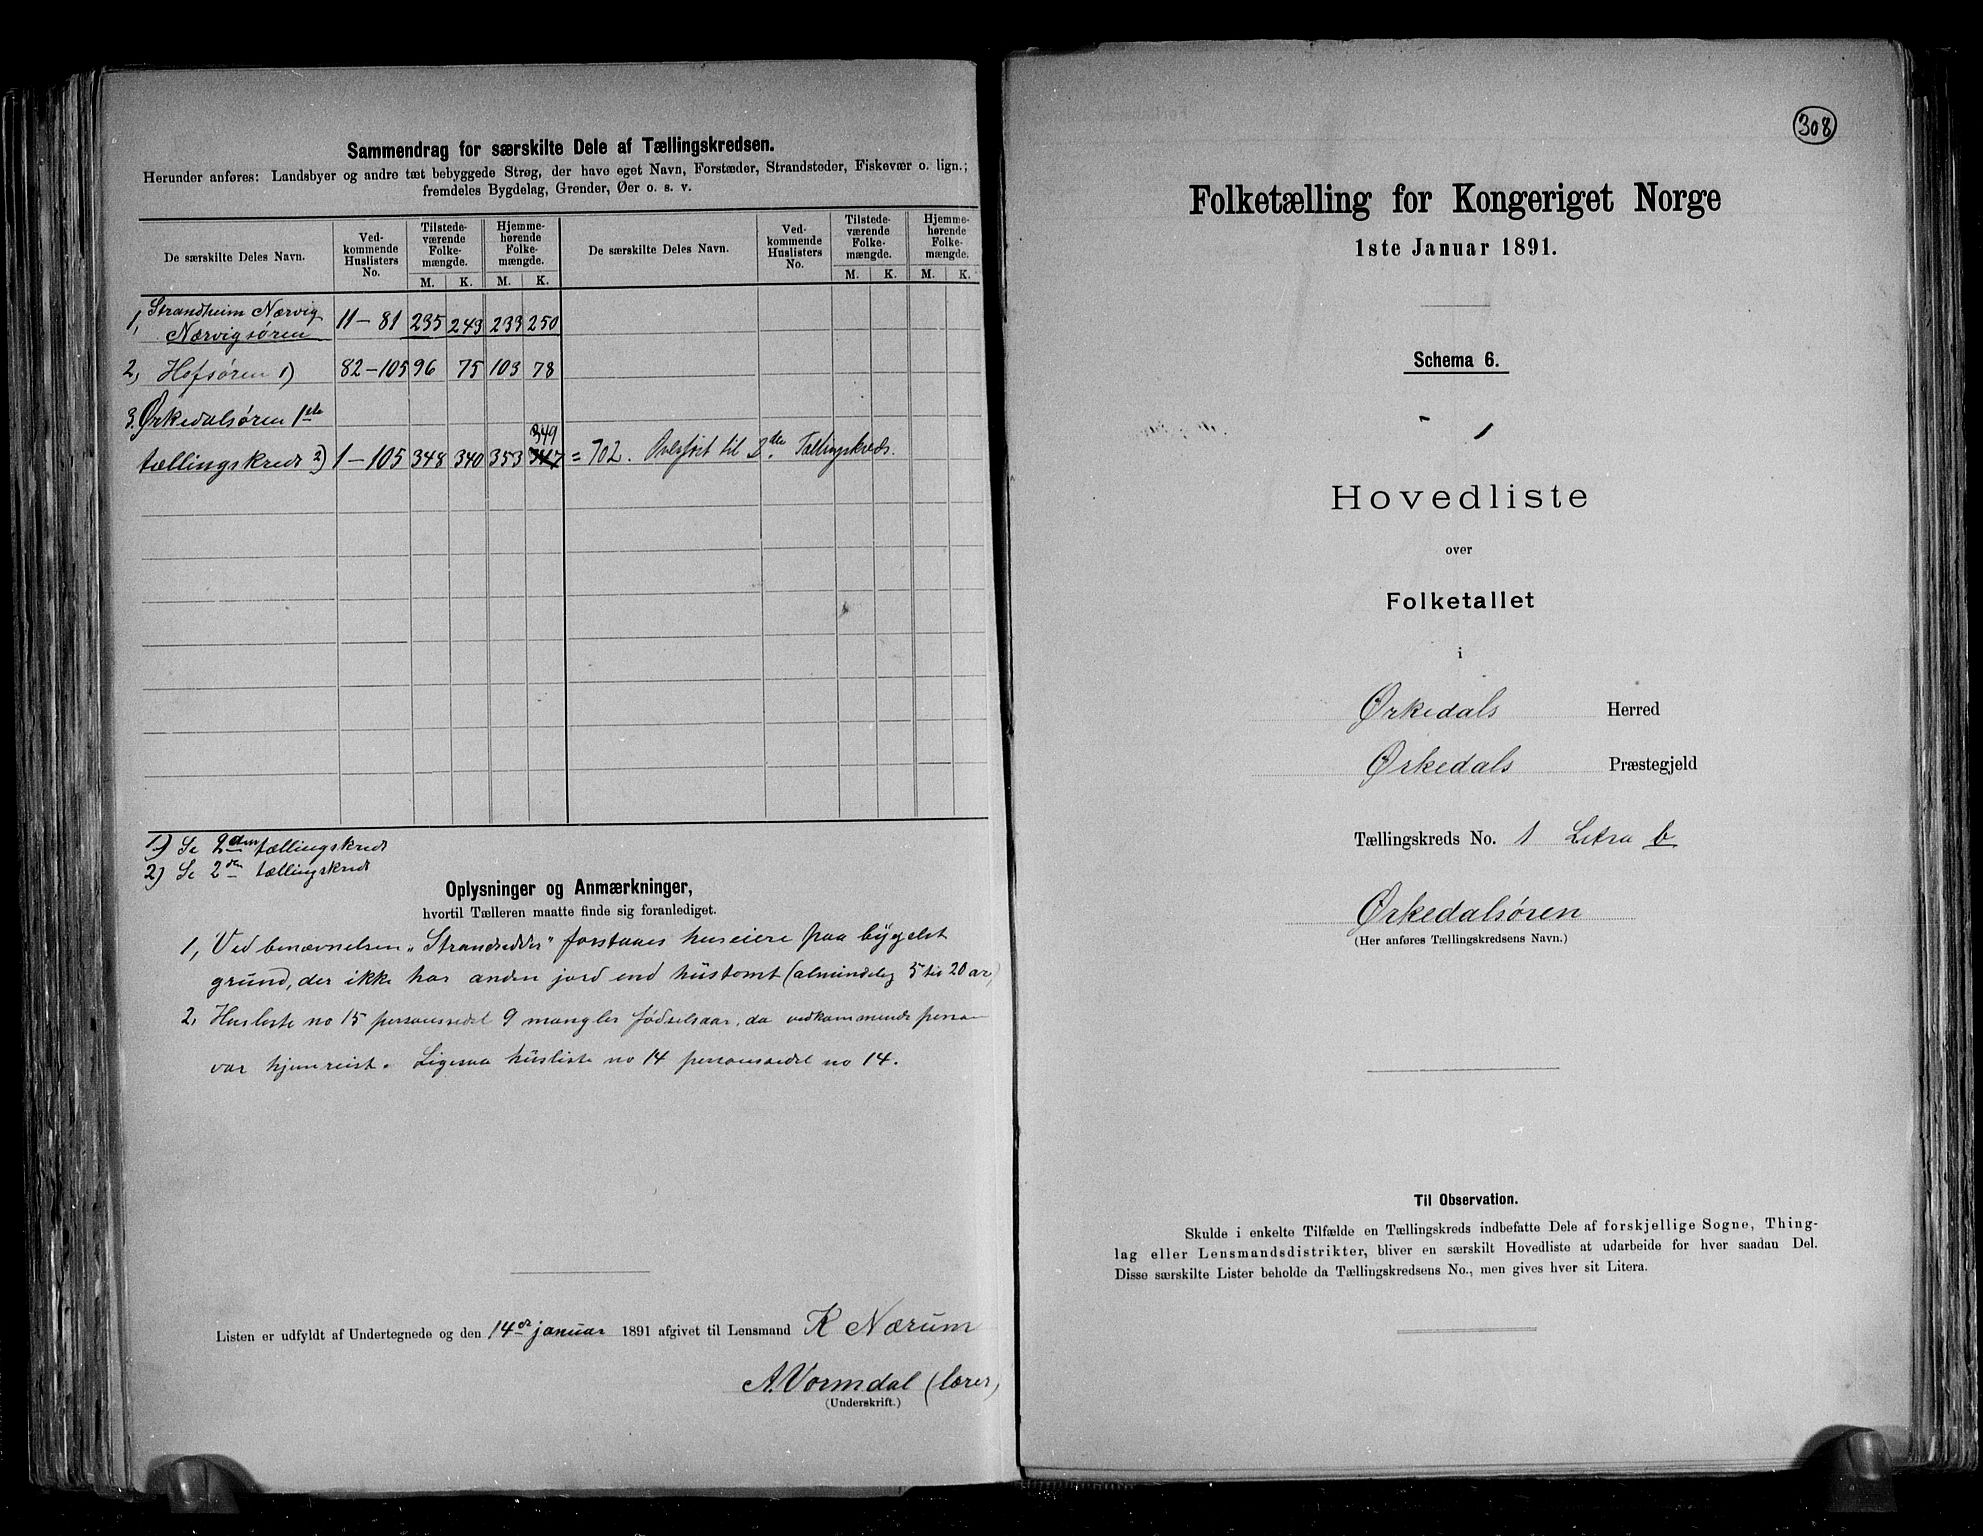 Sammendrag for særskilte Dele af Tællingskredsen.
Herunder anføres: Landsbyer og andre tæt bebyggede Strøg, der have eget Navn, Forstæder, Strandsteder, Fiskevær o. lign.;
fremdeles Bygdelag, Grender, Øer o. s. v.
De særskilte Deles Navn. Ved-kommende Huslisters No. Tilstede-værende Folke-mængde. Hjemme-hørende Folke-mængde. De særskilte Deles Navn. Ved-kommende Huslisters No. Tilstede-værende Folke-mængde. Hjemme-hørende Folke-mængde.
M. K. M. K. M. K. M. K.
1, Strandheim Nærvig
Nærvigsøren 11-81 235 243 233 250
2, Hofsøren 1) 82-105 96 75 103 78
3. Ørkedalsøren 1ste
349
tællingskreds 2) 1-105 348 340 353 347 = 702. Overført til 2den Tællingskreds.
1) Se 2den tællingskreds
2) Se 2den tællingskreds
Oplysninger og Anmærkninger,
hvortil Tælleren maatte finde sig foranlediget.
1, Ved benævnelsen "Strandsidder" forstaaes huseiere paa bygslet
grund, der ikke har anden jord end hustomt (almindelig 5 til 20 ar)
2, Husliste no 15 personsedel 9 mangler fødselsaar, da vedkommende person
var hjemreist. Ligesaa husliste no 14 personsedel no 14.
Listen er udfyldt af Undertegnede og den 14de januar 1891 afgivet til Lensmand K Nærum
A. Vormdal (lærer)
(Underskrift.)
308
Folketælling for Kongeriget Norge
1ste Januar 1891.
Schema 6.
1
Hovedliste
over
Folketallet
i
Ørkedals Herred
Ørkedals Præstegjeld
Tællingskreds No. 1 Litra b
Ørkedalsøren
(Her anføres Tællingskredsens Navn.)
Til Observation.
Skulde i enkelte Tilfælde en Tællingskreds indbefatte Dele af forskjellige Sogne, Thing-
lag eller Lensmandsdistrikter, bliver en særskilt Hovedliste at udarbeide for hver saadan Del.
Disse særskilte Lister beholde da Tællingskredsens No., men gives hver sit Litera.